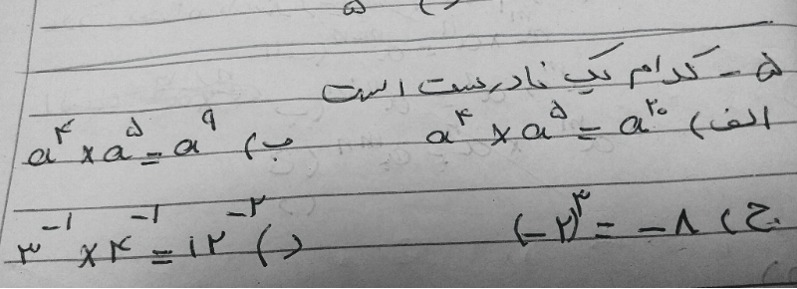 ۵ - کدام یک نادرست است
الف) a^۴ × a^۵ = a^۲۰ ب) a^۴ × a^۵ = a^۹
ج) (-۲)^۳ = -۸ د) ۳^-۱ × ۴^-۱ = ۱۲^-۲